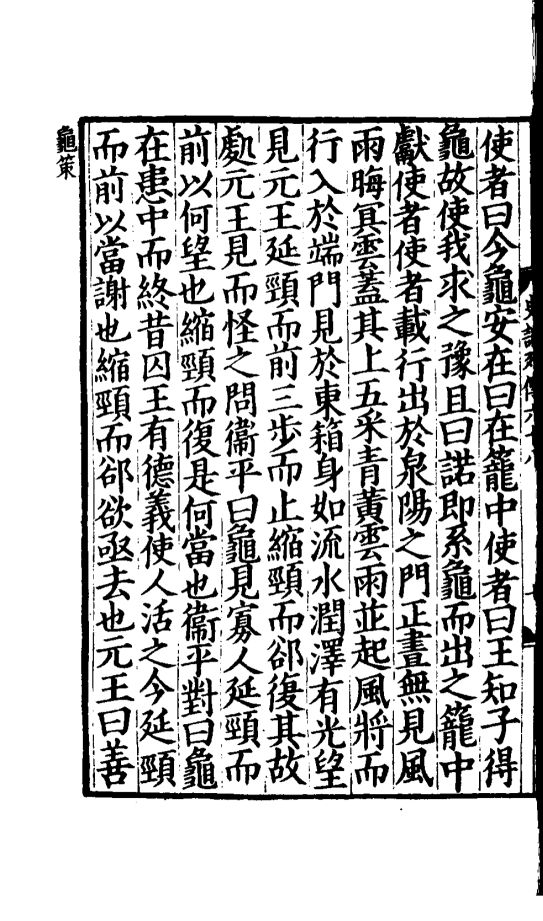 使者曰今龜安在曰在籠中使者曰王知子得
龜故使我求之豫且曰諾即系龜而出之籠中
獻使者使者載行出於泉陽之門正晝無見風
雨晦冥雲蓋其上五采青黃雲雨並起風將而
行入於端門見於東箱身如流水潤澤有光望
見元王延頸而前三步而止縮頸而郤復其故
處元王見而怪之問衞平曰龜見寡人延頸而
前以何望也縮頸而復是何當也衞平對曰龜
在患中而終昔囚王有德義使人活之今延頸
而前以當謝也縮頸而郤欲亟去也元王曰善
龜策